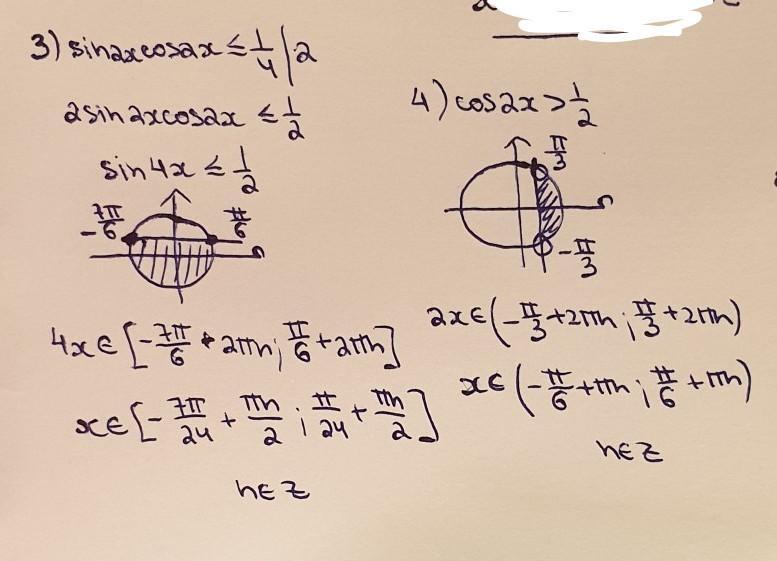 3) sin2xcos2x ≤ 1/4 | ·2
2sin2xcos2x ≤ 1/2
sin4x ≤ 1/2
-7π/6 π/6
4x ∈ [-7π/6 + 2πn; π/6 + 2πn]
x ∈ [-7π/24 + πn/2; π/24 + πn/2]
n ∈ Z
4) cos2x > 1/2
π/3
-π/3
2x ∈ (-π/3 + 2πn; π/3 + 2πn)
x ∈ (-π/6 + πn; π/6 + πn)
n ∈ Z